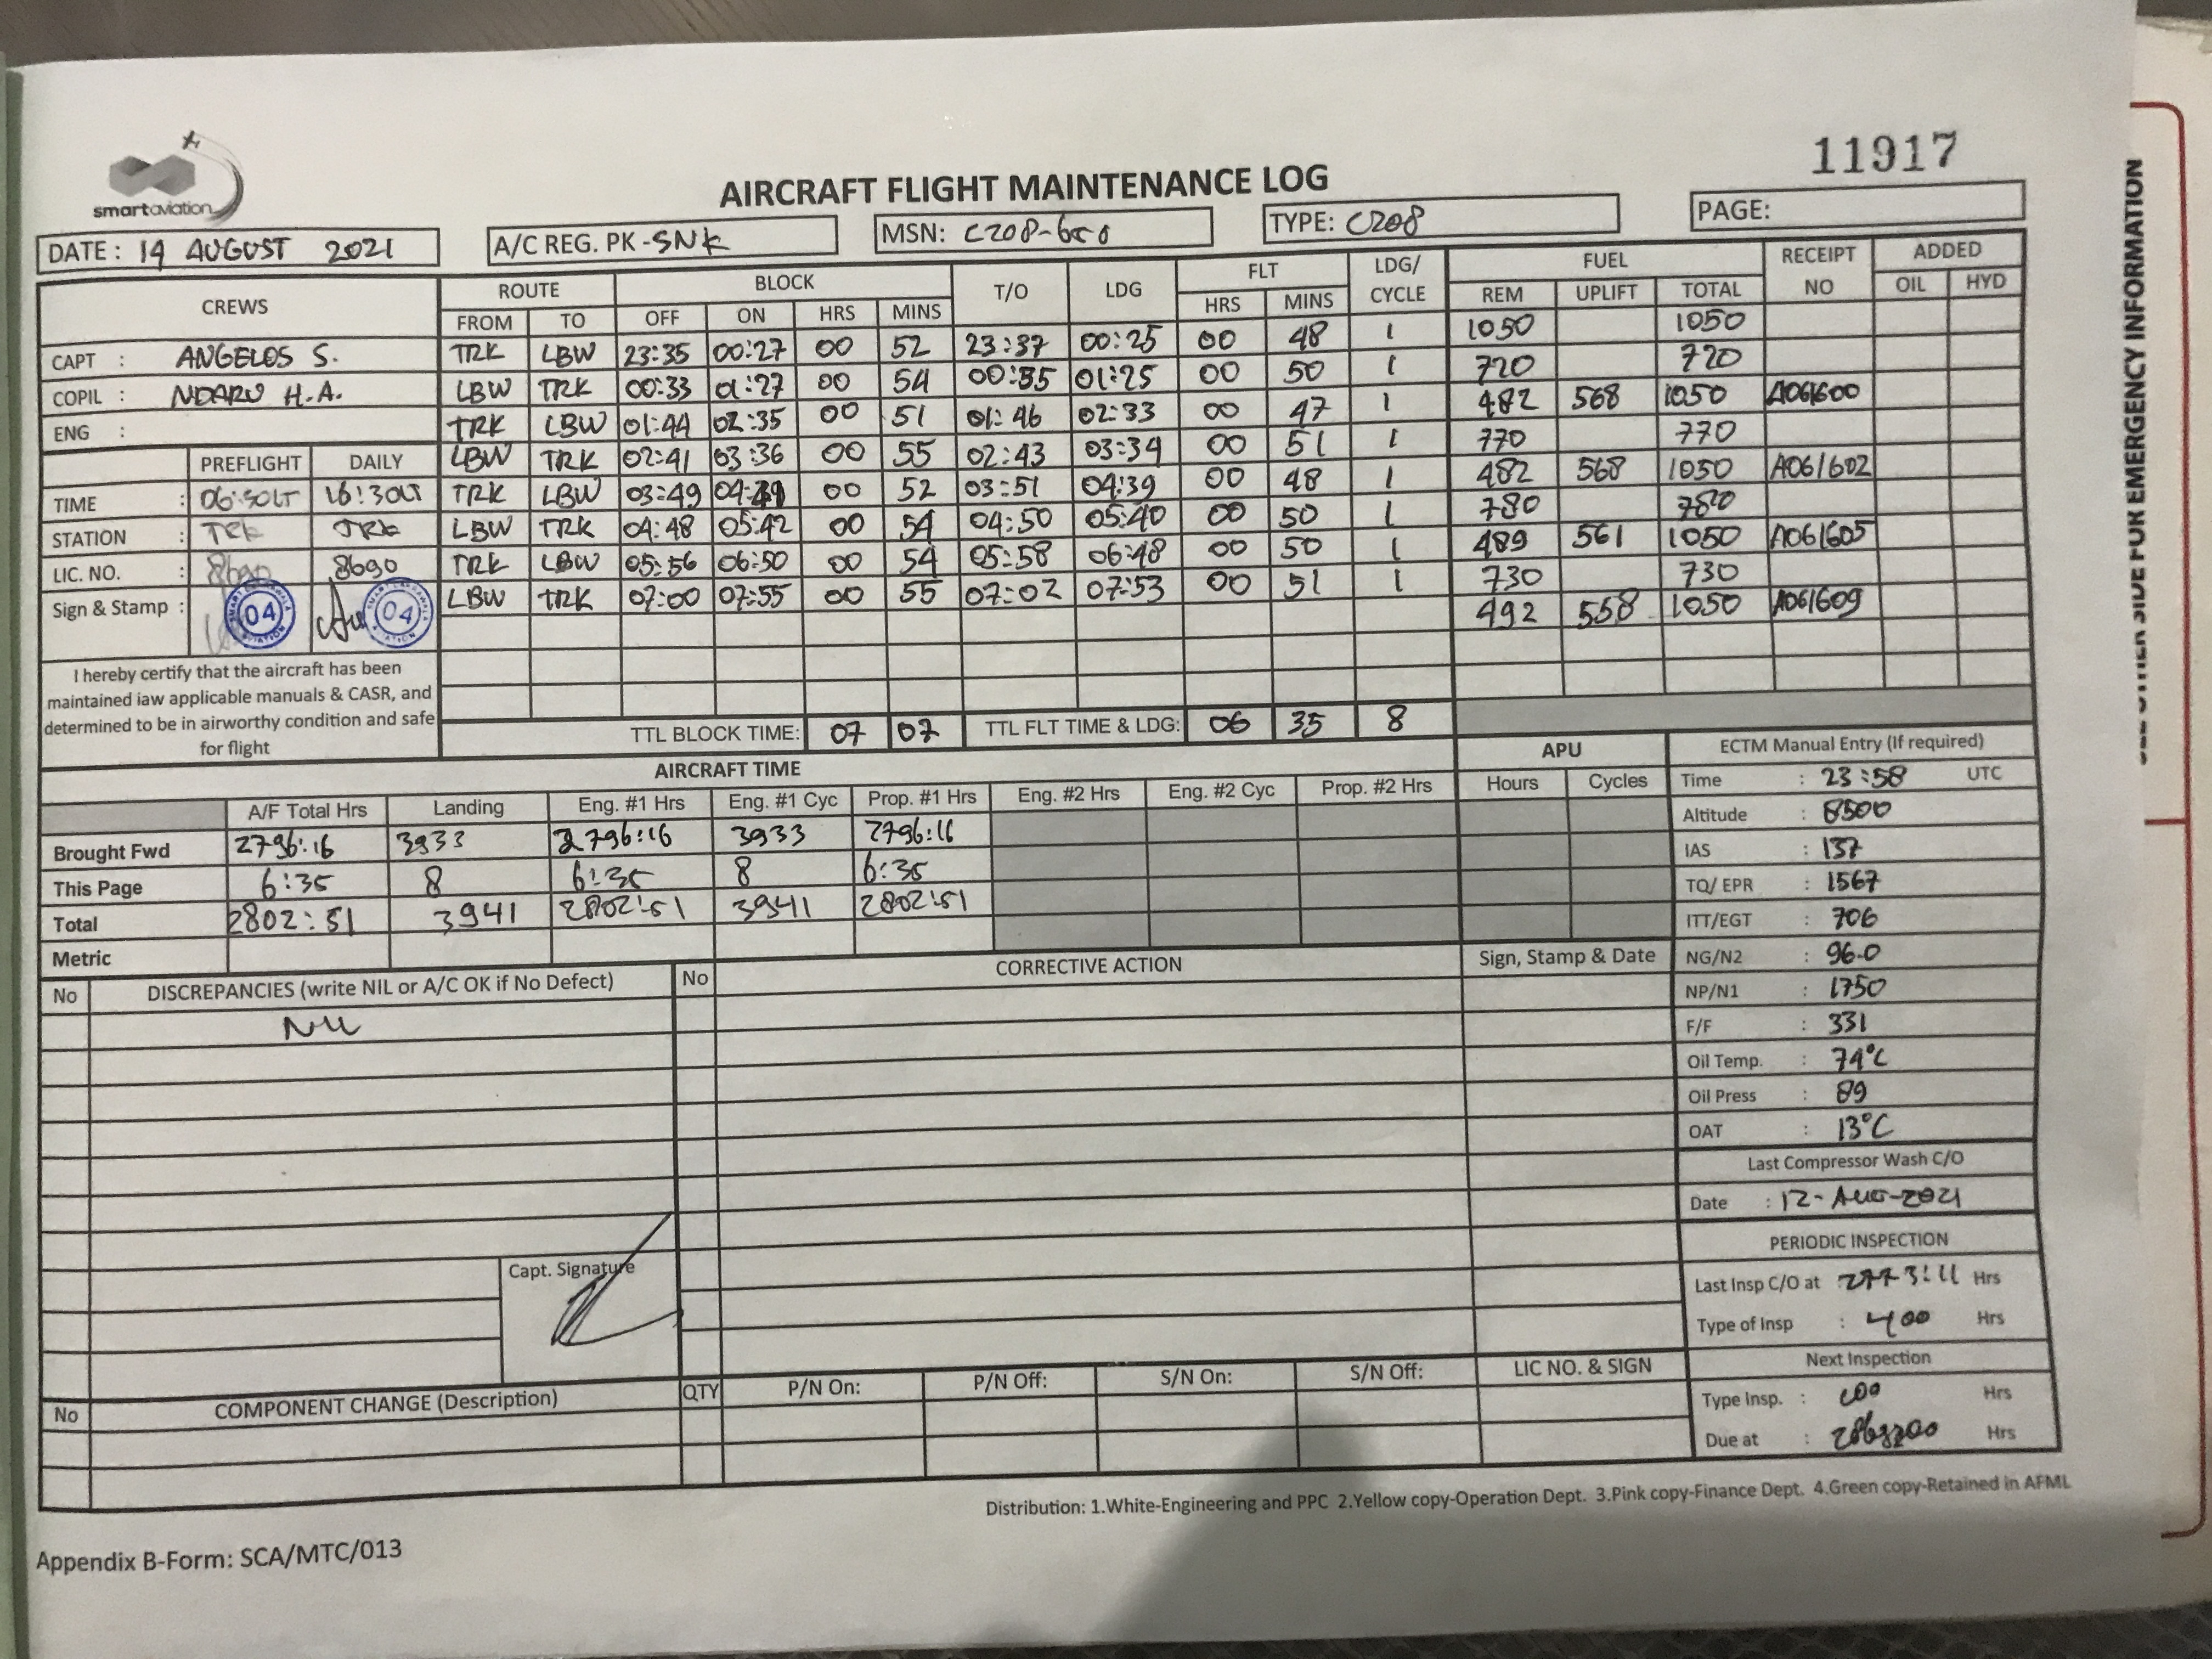 11917
smartaviation
AIRCRAFT FLIGHT MAINTENANCE LOG
DATE : 14 AUGUST 2021 A/C REG. PK -SNK MSN: C208-650 TYPE: C208 PAGE:
CREWS ROUTE BLOCK T/O LDG FLT LDG/ CYCLE FUEL RECEIPT NO ADDED
FROM TO OFF ON HRS MINS HRS MINS REM UPLIFT TOTAL OIL HYD
CAPT : ANGELOS S.
COPIL : NDARU H.A.
ENG :
PREFLIGHT DAILY
TIME : 06:30LT 16:30LT
STATION : TRK TRK
LIC. NO. : 8690 8690
Sign & Stamp : 04 04
I hereby certify that the aircraft has been
maintained iaw applicable manuals & CASR, and
determined to be in airworthy condition and safe
for flight
TRK LBW 23:35 00:27 00 52 23:37 00:25 00 48 1 1050 1050
LBW TRK 00:33 01:27 00 54 00:35 01:25 00 50 1 720 720
TRK LBW 01:44 02:35 00 51 01:46 02:33 00 47 1 482 568 1050 A061600
LBW TRK 02:41 03:36 00 55 02:43 03:34 00 51 1 770 770
TRK LBW 03:49 04:41 00 52 03:51 04:39 00 48 1 482 568 1050 A061602
LBW TRK 04:48 05:42 00 54 04:50 05:40 00 50 1 780 780
TRK LBW 05:56 06:50 00 54 05:58 06:48 00 50 1 489 561 1050 A061605
LBW TRK 07:00 07:55 00 55 07:02 07:53 00 51 1 730 730
492 558 1050 A061609
TTL BLOCK TIME: 07 07 TTL FLT TIME & LDG: 06 35 8
AIRCRAFT TIME APU
A/F Total Hrs Landing Eng. #1 Hrs Eng. #1 Cyc Prop. #1 Hrs Eng. #2 Hrs Eng. #2 Cyc Prop. #2 Hrs Hours Cycles
Brought Fwd 2796:16 3933 2796:16 3933 2796:16
This Page 6:35 8 6:35 8 6:35
Total 2802:51 3941 2802:51 3941 2802:51
Metric
ECTM Manual Entry (If required)
Time : 23:58 UTC
Altitude : 8500
IAS : 137
TQ/ EPR : 1567
ITT/EGT : 706
NG/N2 : 96.0
NP/N1 : 1750
F/F : 331
Oil Temp. : 74°C
Oil Press : 89
OAT : 13°C
Last Compressor Wash C/O
Date : 12-AUG-2021
PERIODIC INSPECTION
Last Insp C/O at 2773:11 Hrs
Type of Insp : 400 Hrs
Next Inspection
Type Insp. : Hrs
Due at : Hrs
No DISCREPANCIES (write NIL or A/C OK if No Defect) No CORRECTIVE ACTION Sign, Stamp & Date
NIL
Capt. Signature
No COMPONENT CHANGE (Description) QTY P/N On: P/N Off: S/N On: S/N Off: LIC NO. & SIGN
Distribution: 1.White-Engineering and PPC 2.Yellow copy-Operation Dept. 3.Pink copy-Finance Dept. 4.Green copy-Retained in AFML
Appendix B-Form: SCA/MTC/013
SIDE FOR EMERGENCY INFORMATION